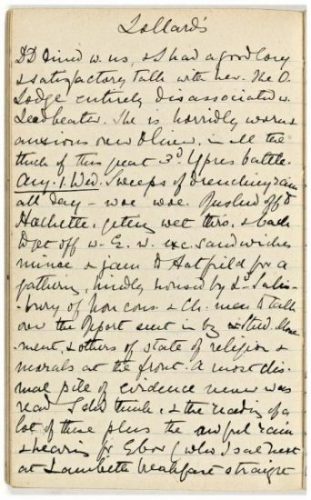 Lollard's
DD dined w. us, & I had a good long
& satisfactory talk with her. The O.
Lodge entirely disassociated w.
Leadbeater. She is horridly worn &
anxious over Oliver, in all the
thick of this great 3d Ypres battle.
Aug. 1. Wed. Sweeps of drenching rain
all day - woe woe. Pushed off to
Hachette, getting wet thro', & back
to get off w. E. w. exc. sandwiches
mince & jam to Hatfield for a
gathering, kindly housed by Ld Salis-
bury of non cons & Ch. men to talk
over the report sent in by Move-
ment, & others of state of religion &
morals at the front. A most dis-
mal pile of evidence never was
read I shd think, & the reading of a
lot of these plus the awful rain
& hearing fr Ebor (who I sat next
at Lambeth breakfast straight